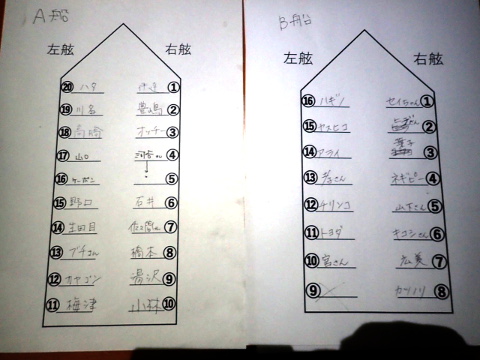 A船
左舷 右舷
⑳ ハタ ①
⑲ 川名 豊嶋 ②
⑱ 高崎 オッチー ③
⑰ 山口 河合さん ④
⑯ ケーボン ⑤
⑮ 野口 石井 ⑥
⑭ 生田目 ⑦
⑬ ブチさん 橋本 ⑧
⑫ カヤコン 湯沢 ⑨
⑪ 梅津 小林 ⑩
B船
左舷 右舷
⑯ ハギノ セイちゃん ①
⑮ ヤスヒコ ②
⑭ アライ ③
⑬ 孝さん ネギピー ④
⑫ チリンコ 山下さん ⑤
⑪ トヨダ キコシさん ⑥
⑩ 宮さん 広美 ⑦
⑨ カツノリ ⑧